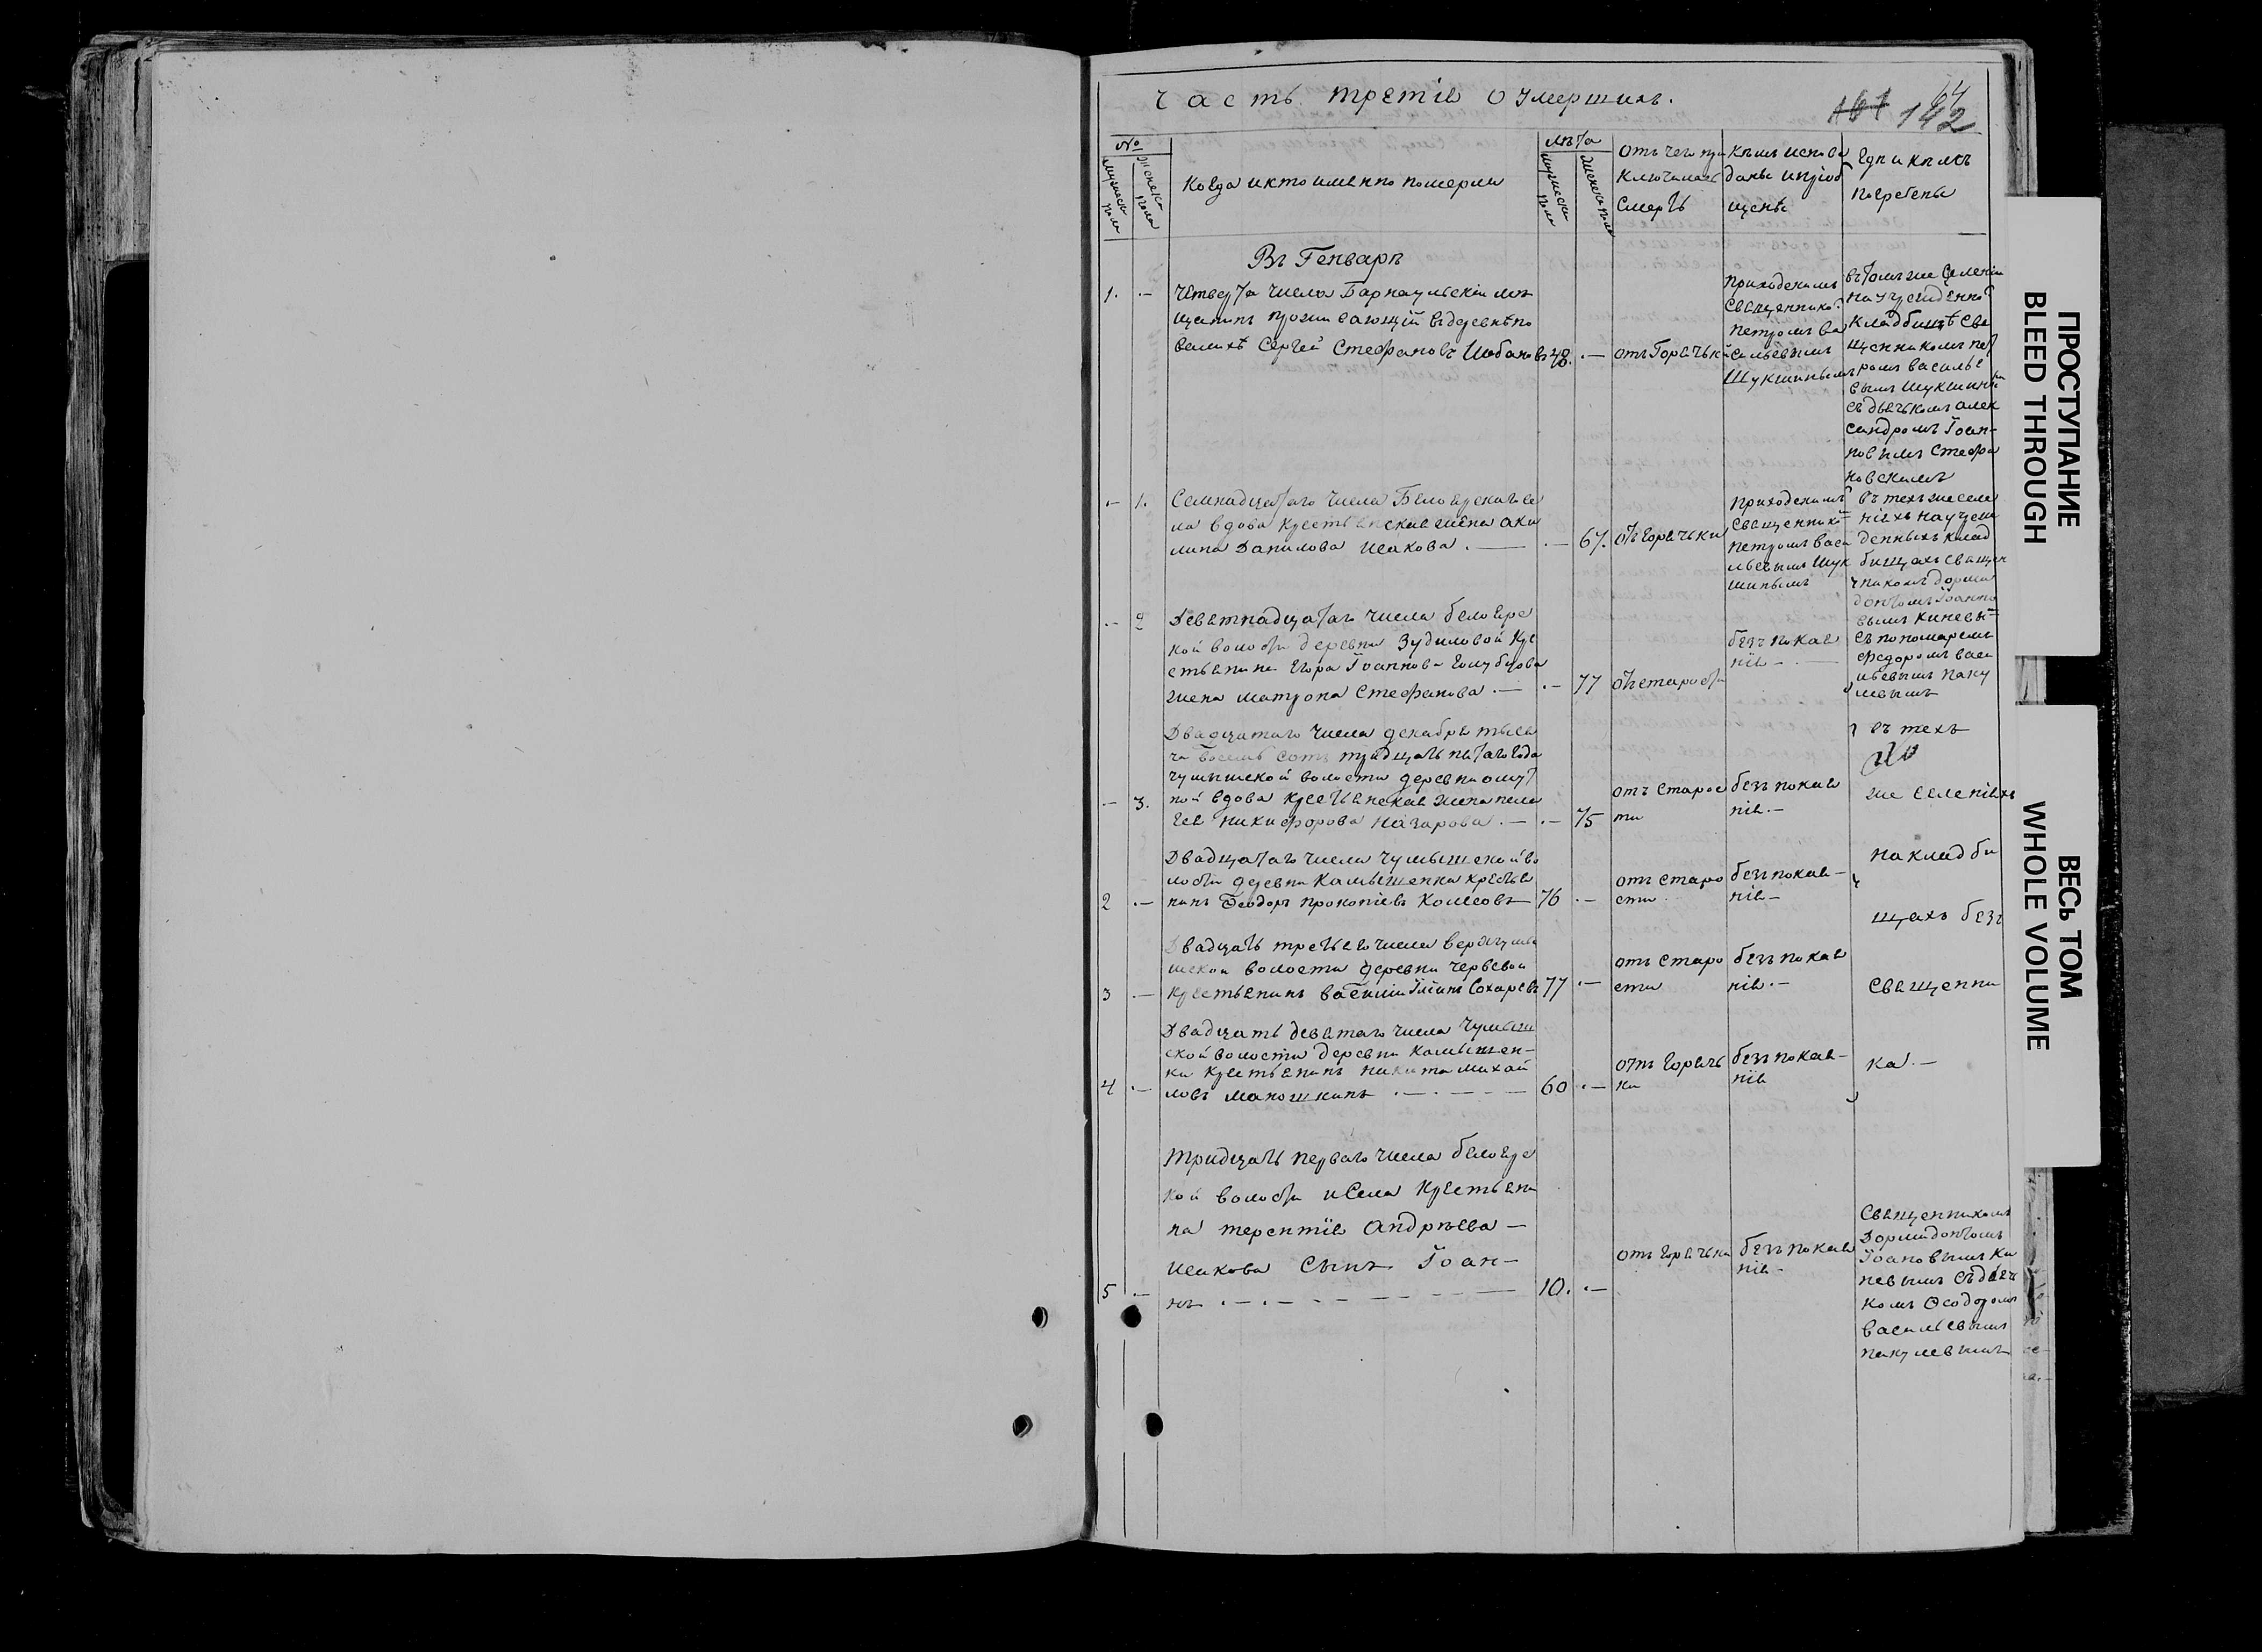 часть третія о умершихъ.
64
161 142
№
мужеска пола
женска пола
Когда и кто именно померли
лѣта
мужеска пола
женска пола
отъ чего при
ключилась
смерть
кѣмъ испове
даны и пріоб
щены
гдѣ и кѣмъ
погребены
Въ Генварѣ
1. —
четверта числа Барнаульскій мѣ
щанинъ проживающій въ деревнѣ по
валихѣ Сергей Стефановъ Шобановъ
48. —
отъ горячьки
приходскимъ
священнико
петромъ ва
сильевымъ
Шукшинымъ
въ томъ же селеніи
на учрежденно
кладбищѣ свя
щенникомъ пет
ромъ василье
вымъ Шукшины
съ дьячькомъ алек
сандромъ Іоан-
новымъ Стефа
новскимъ
— 1.
Семнадцатаго числа Белоярскаго се
ла вдова крестьянская жена аки
лина Данилова Исакова. —
— 67.
отъ горячьки
приходскимъ
священнико
петромъ васи
льевымъ Шук
шинымъ
въ техъ же селе
ніяхъ на учреж
денныхъ клад
бищахъ священ
никомъ дорми
донтомъ Іоанно
вымъ киневы
съ пономаремъ
федоромъ васи
льевымъ паку
левымъ
— 2
Девятнадцатаго числа белояре
кой волости деревни Зудиловой кре
стьянина Егора Іоаннова Голубцова
жена матрона Стефанова. —
— 77
отъ старости
безъ покая
нія —
Двадцатаго числа декабря тыся
ча восемь сотъ тридцать пятаго года
чумышской волости деревни омут
ной вдова крестьянская жена пела
гея никифорова Назарова. —
— 3.
— 75
отъ старос
ти
безъ покая
нія. —
въ техъ
же селеніяхъ
на кладби
щахъ безъ
священни
ка. —
Двадцатаго числа чумышской во
лости деревни Камышенки крестья
нинъ Ѳеодоръ прокопіевъ Колесовъ
2 —
76 —
отъ старо
сти
безъ покая-
нія —
Двадцать третьяго числа верхчумы
шской волости деревни червевой
крестьянинъ василій Ильинъ Сохаревъ
3 —
77 —
отъ старо
сти
безъ покая
нія. —
Двадцать девятаго числа Чумыш
ской волости деревни Камышен-
ки крестьянинъ никита михай
ловъ Маношкинъ
4 —
60 —
отъ горяч
ки
безъ покая-
нія
тридцать перваго числа белояре
кой волости и села крестьяни
на терентія Андрѣева —
Исакова сынъ Іоан-
нъ
5 —
10. —
отъ горячьки
безъ покая
нія —
священникомъ
Дормидонтомъ
Іоановымъ Ки
невымъ съ дьяч
комъ Ѳеодоромъ
васильевымъ
пакулевымъ
ПРОСТУПАНИЕ
BLEED THROUGH
ВЕСЬ ТОМ
WHOLE VOLUME